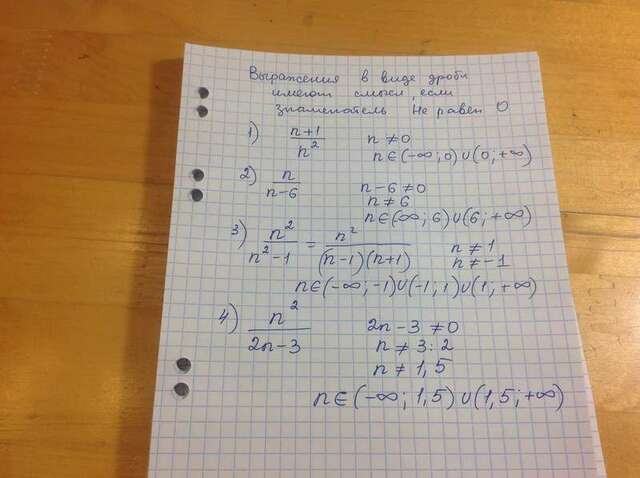 Выражения в виде дроби
имеют смысл, если
знаменатель не равен 0
1) (n+1)/n² n ≠ 0
n∈(-∞; 0)∪(0; +∞)
2) n/(n-6) n-6 ≠ 0
n ≠ 6
n∈(∞; 6)∪(6; +∞)
3) n²/(n²-1) = n²/((n-1)(n+1)) n ≠ 1
n ≠ -1
n∈(-∞; -1)∪(-1; 1)∪(1; +∞)
4) n²/(2n-3) 2n-3 ≠ 0
n ≠ 3:2
n ≠ 1,5
n∈(-∞; 1,5)∪(1,5; +∞)